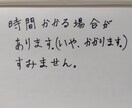 時間かかる場合が
あります。(いや、かかります。)
すみません。